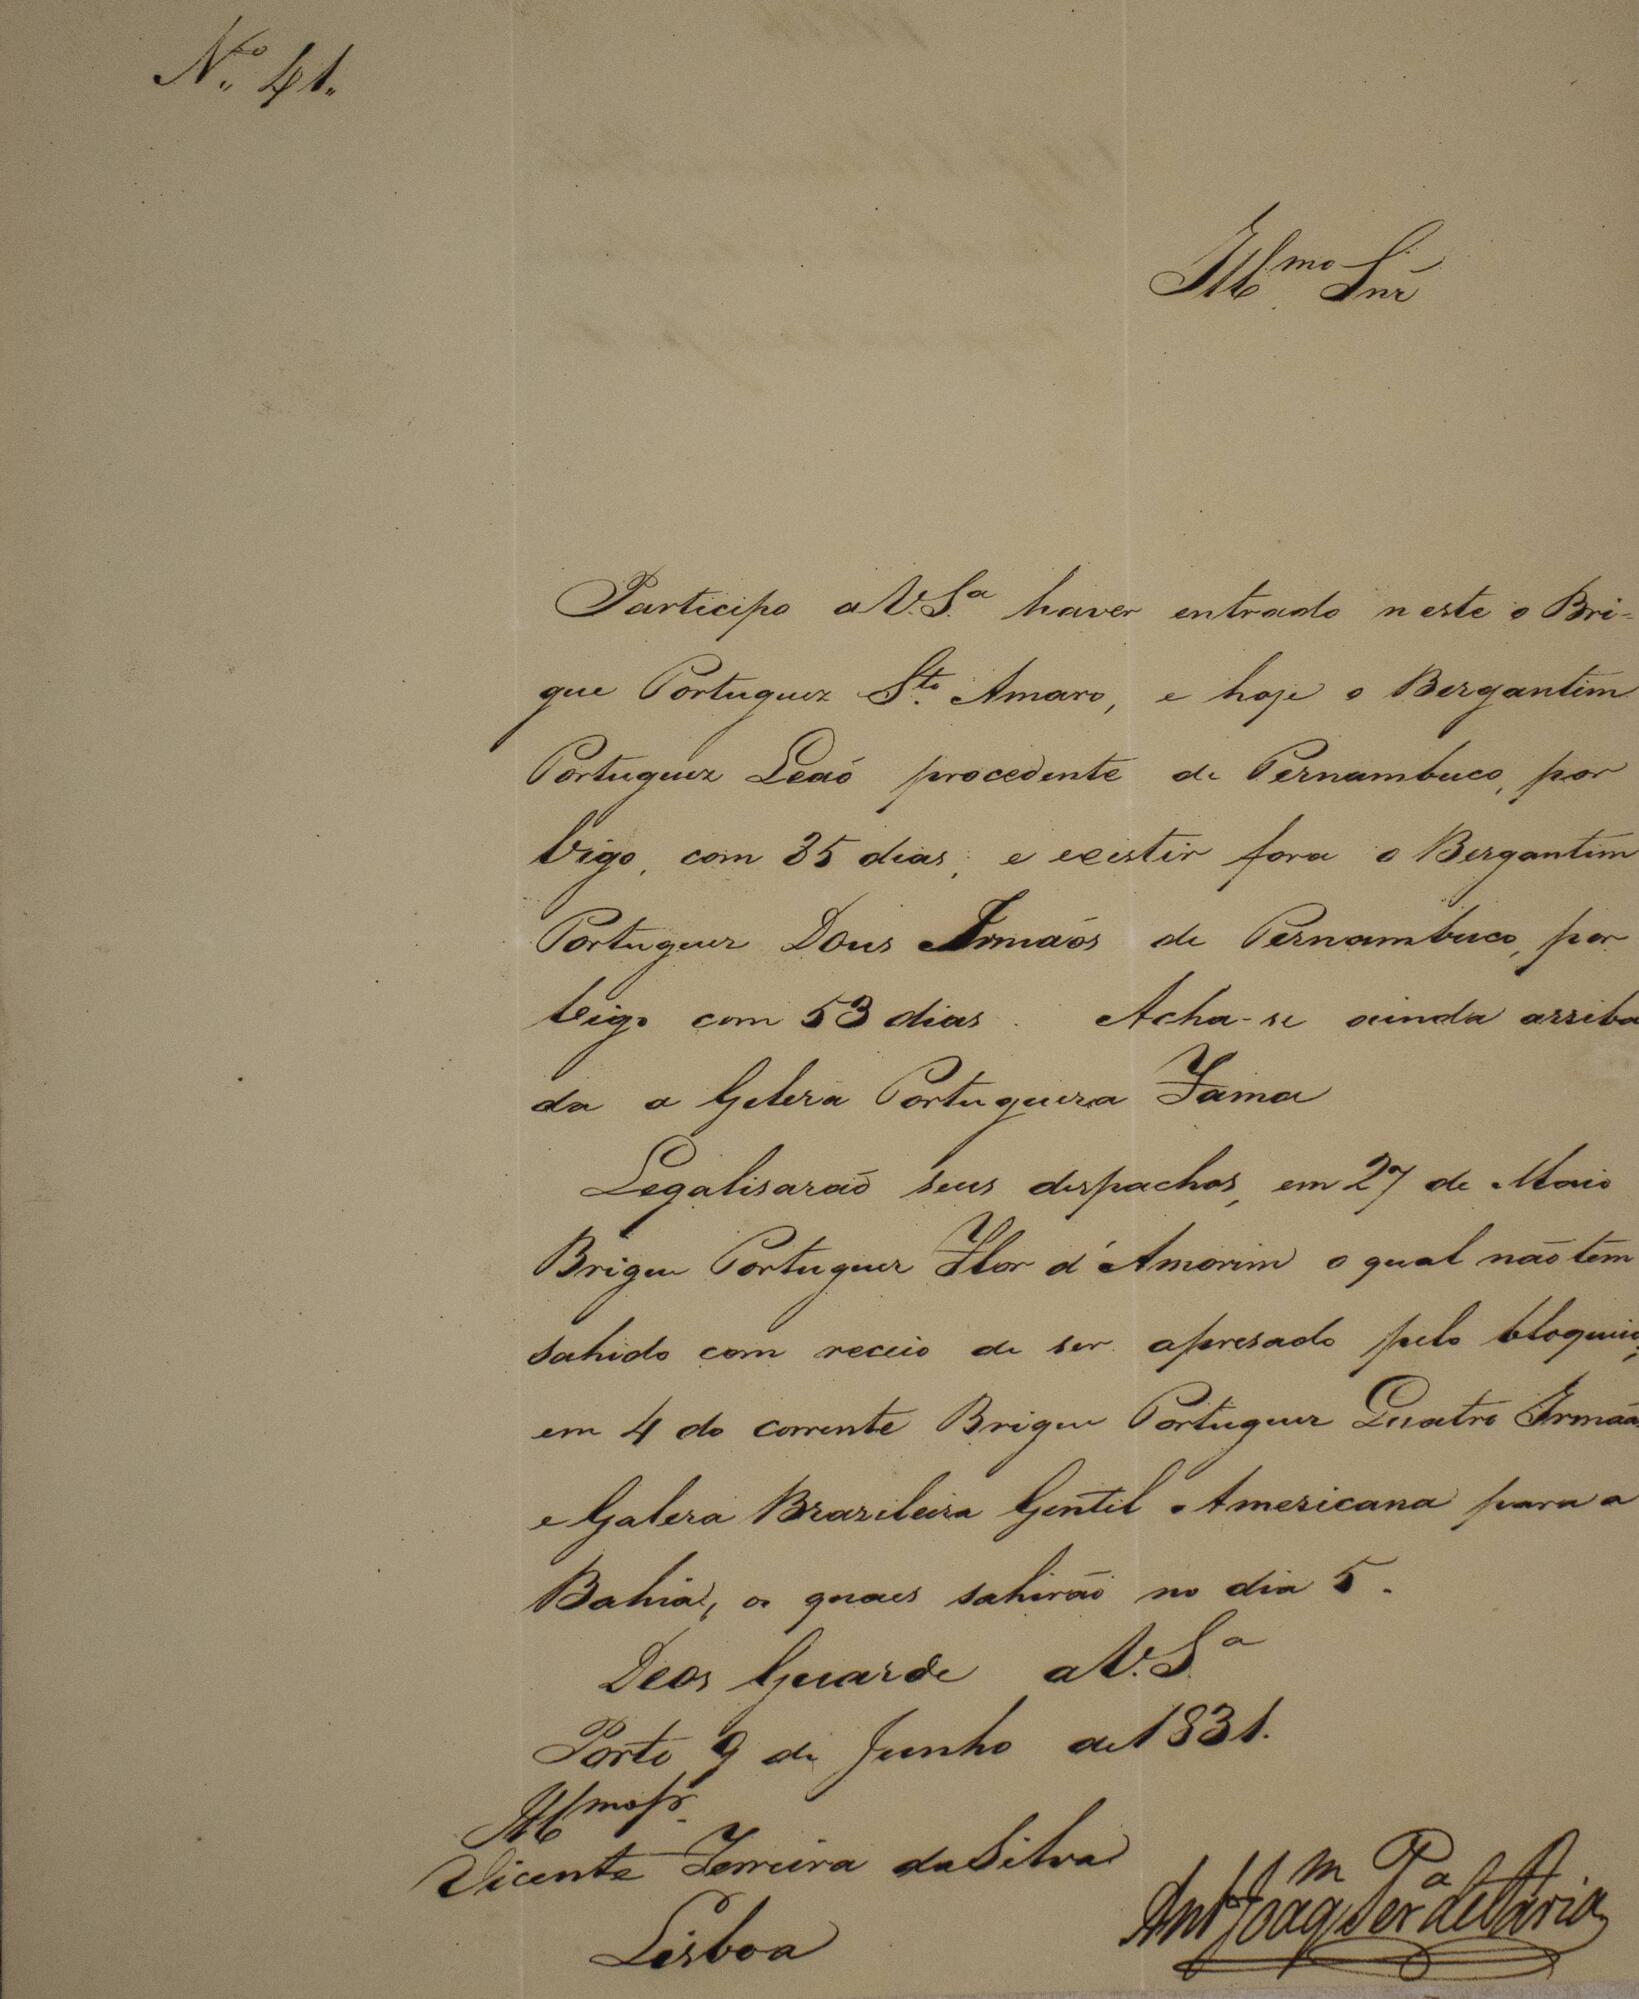 Nº 41.
Illmo Snr
Participo a V.Sª haver entrado neste o Bri-
gue Portuguez Sto Amaro, e hoje o Bergantim
Portuguez Leaõ procedente de Pernambuco, por
Vigo, com 35 dias; e existir fora o Bergantim
Portuguez Dous Irmaõs de Pernambuco, por
Vigo com 53 dias. Acha-se ainda arriba
da a Galera Portugueza Fama
Legalisaraõ seus despachos, em 27 de Maio
Brigue Portuguez Flor d'Amorim o qual não tem
sahido com receio de ser apresado pelo bloqueio;
em 4 do corrente Brigue Portuguez Quatro Irmãos
e Galera Brazileira Gentil Americana para a
Bahia, os quaes sahirão no dia 5.
Deos Guarde a V.Sª
Porto 9 de Junho de 1831.
Illmo Sr
Vicente Ferreira da Silva
Lisboa
Antº Joaqm Perª de Faria